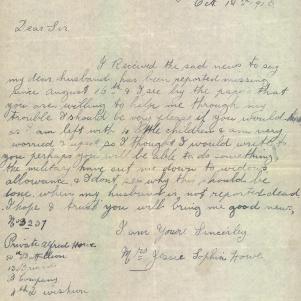 Oct 14th 1916
Dear Sir
I Received the sad news to say
my dear husband has been reported missing
since August 16th & I see by the papers that
you are willing to help me through my
trouble I should be very pleased if you would
as I am left with 4 little children & am very
worried & upset, so I thought I would write to
you perhaps you will be able to do something,
the military have cut me down to widows
allowance, & I dont see why this should be
done, when my husband is not reported dead
I hope & trust you will bring me good news,
I am Yours Sincerely
Mrs Sophia Howe
No 3237
Private Alfred
Battalion
Company